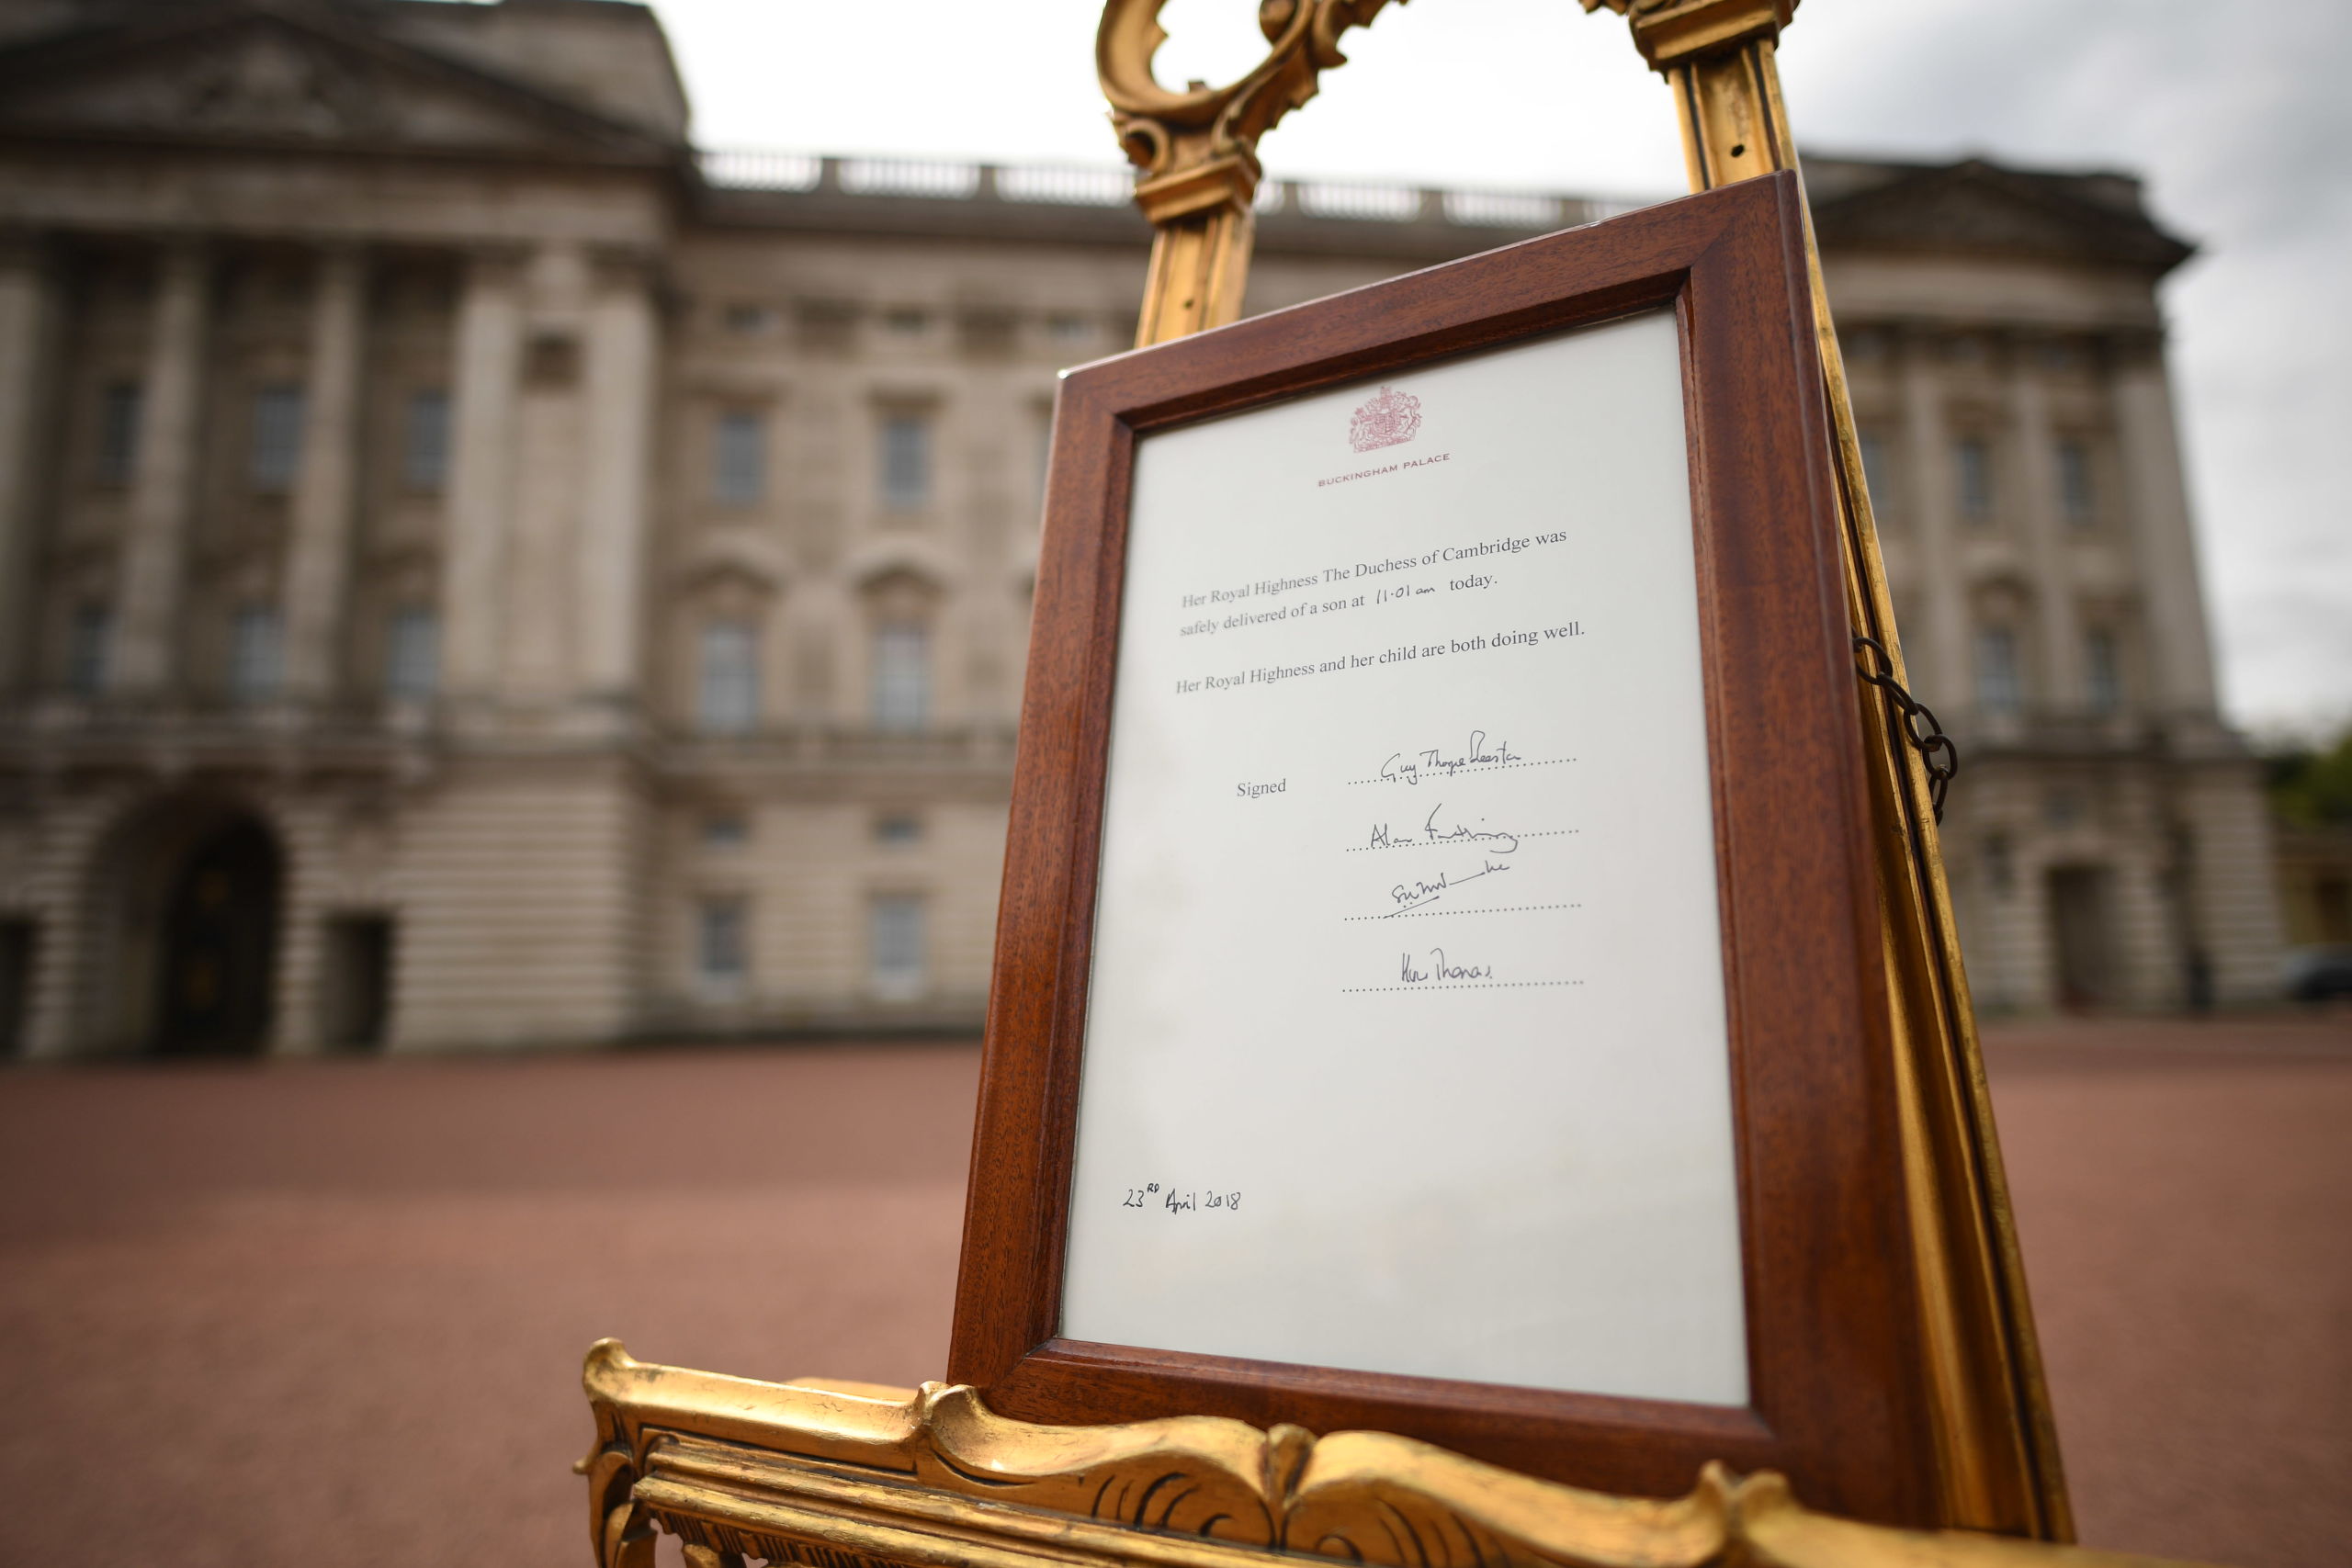 BUCKINGHAM PALACE
Her Royal Highness The Duchess of Cambridge was
safely delivered of a son at 11.01 am today.
Her Royal Highness and her child are both doing well.
Signed
Guy Thorpe Beeston
Alan Farthing
Thomas
23RD April 2018